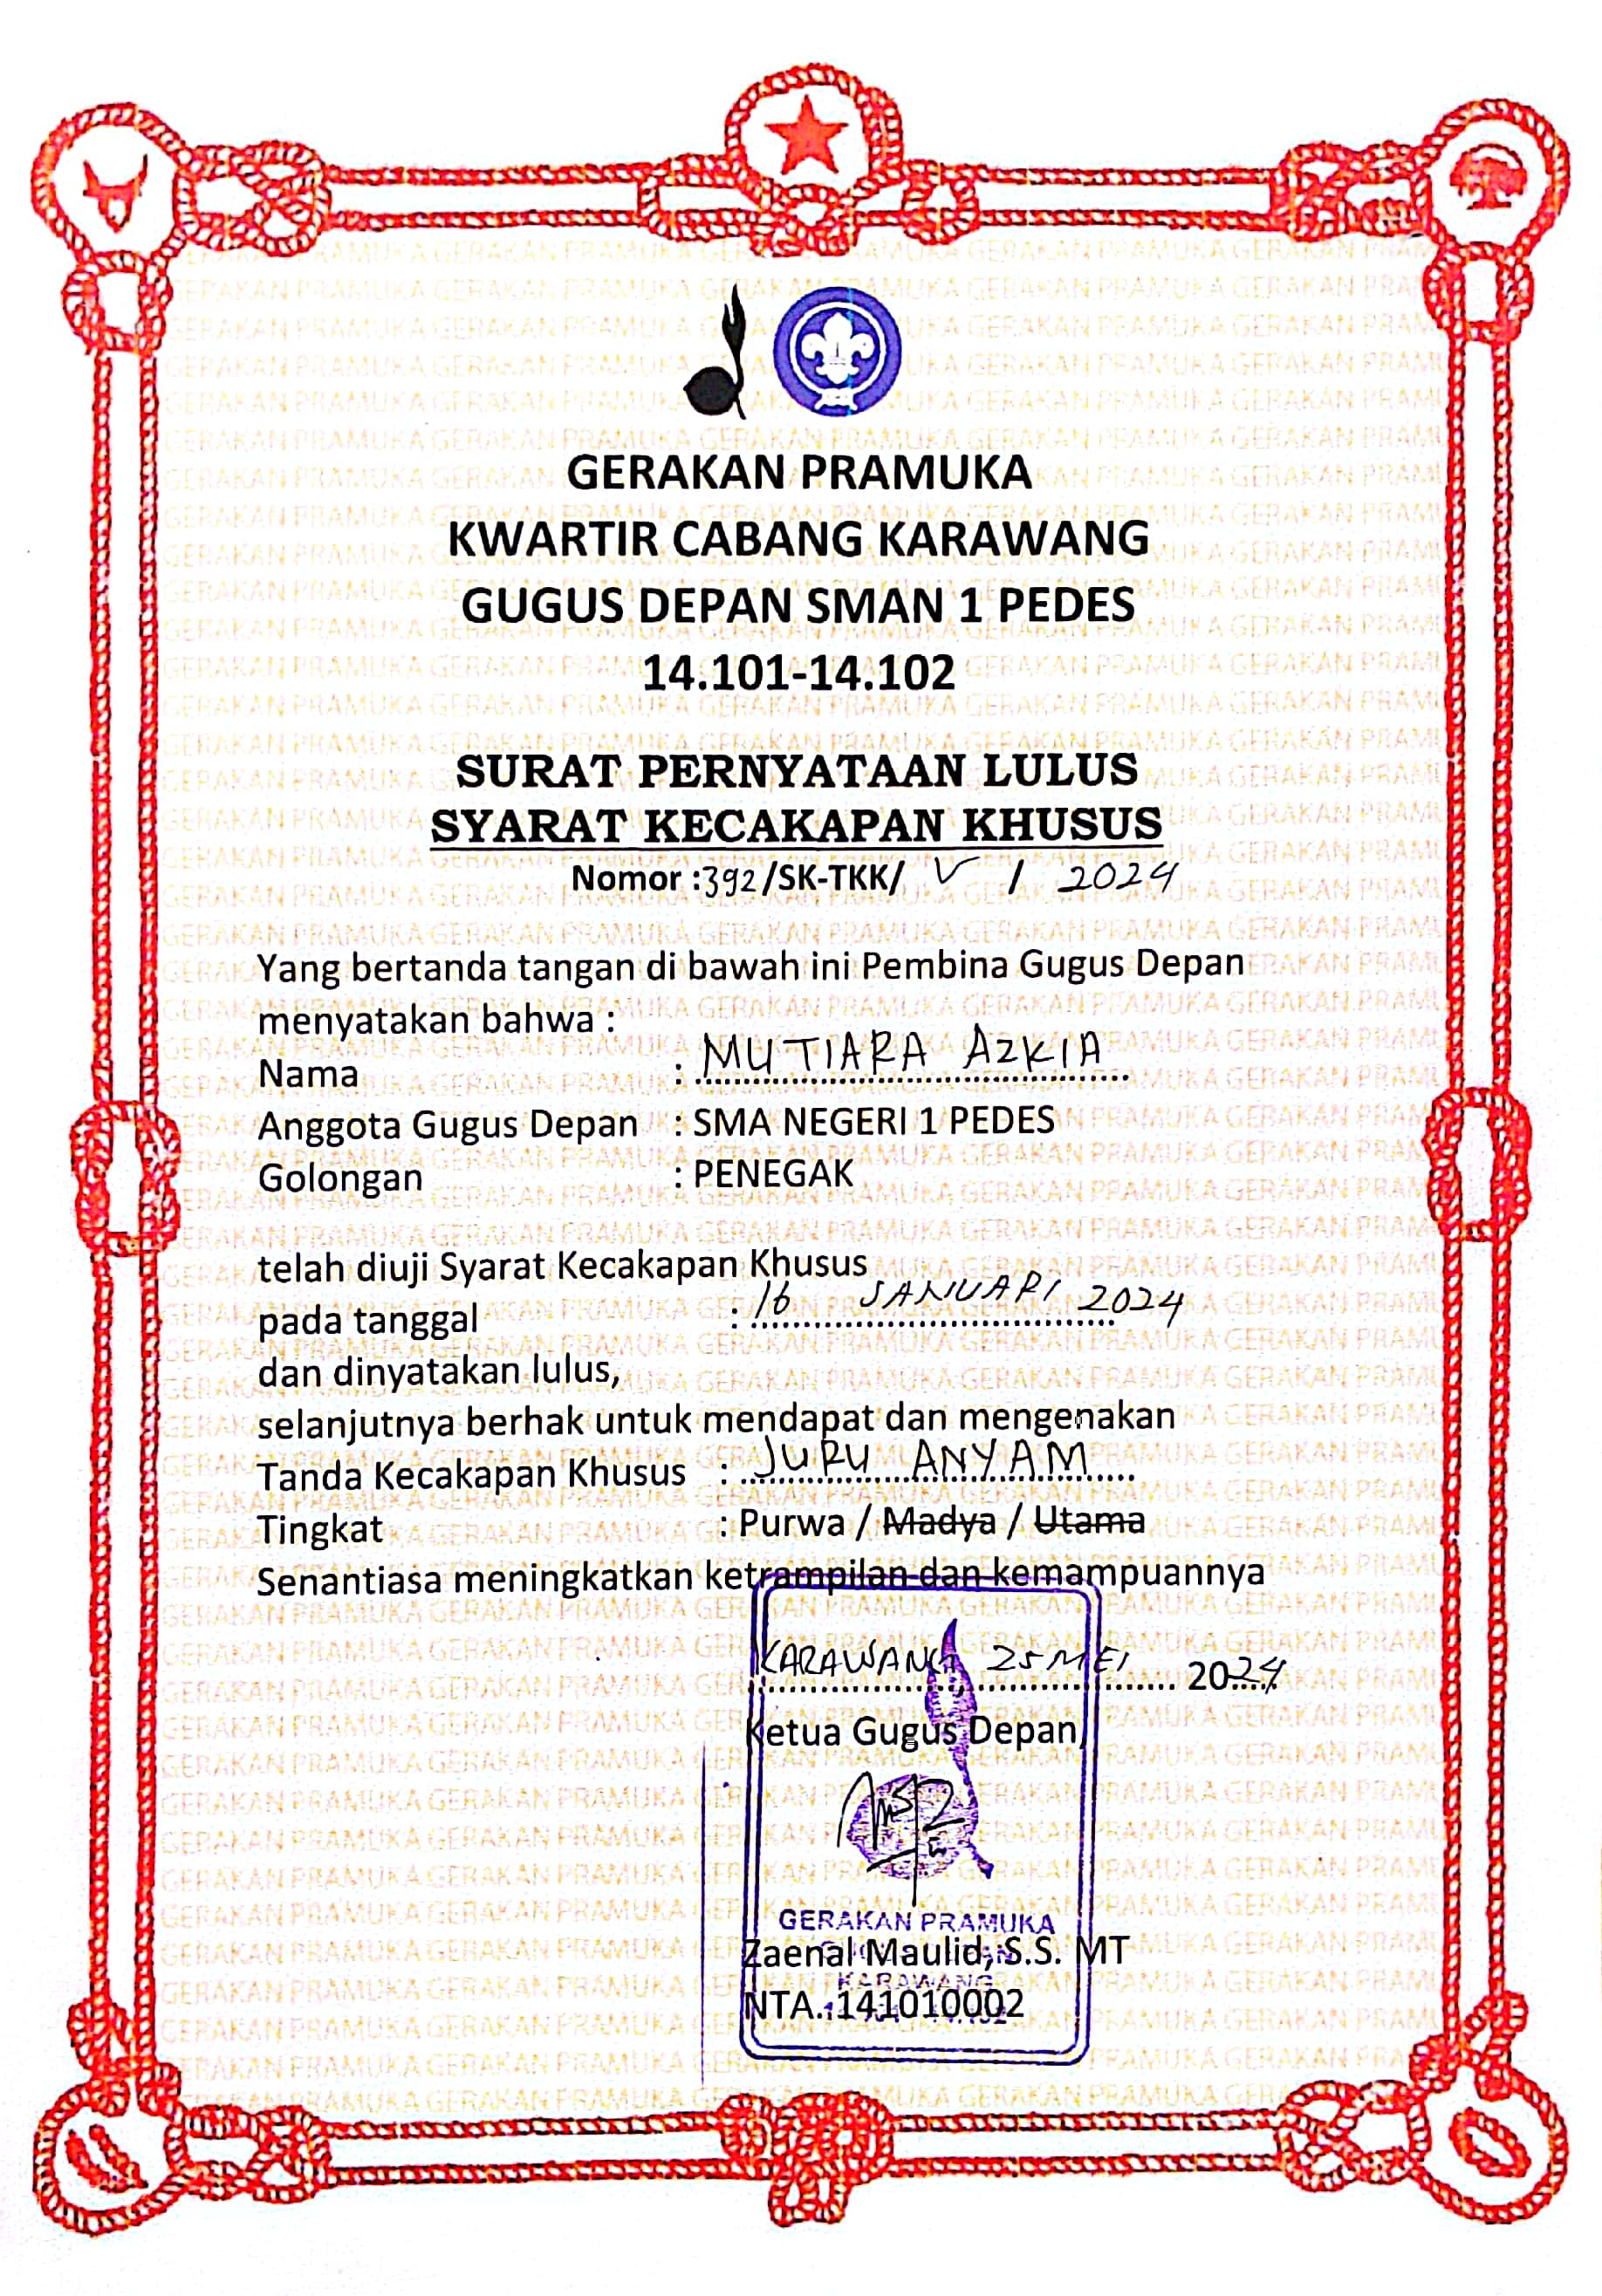 GERAKAN PRAMUKA
KWARTIR CABANG KARAWANG
GUGUS DEPAN SMAN 1 PEDES
14.101-14.102
SURAT PERNYATAAN LULUS
SYARAT KECAKAPAN KHUSUS
Nomor :392/SK-TKK/ V / 2024
Yang bertanda tangan di bawah ini Pembina Gugus Depan
menyatakan bahwa :
Nama : MUTIARA AZKIA
Anggota Gugus Depan : SMA NEGERI 1 PEDES
Golongan : PENEGAK
telah diuji Syarat Kecakapan Khusus
pada tanggal : 16 JANUARI 2024
dan dinyatakan lulus,
selanjutnya berhak untuk mendapat dan mengenakan
Tanda Kecakapan Khusus : JURU ANYAM
Tingkat : Purwa / Madya / Utama
Senantiasa meningkatkan ketrampilan dan kemampuannya
KARAWANG, 25 MEI 2024
Ketua Gugus Depan
GERAKAN PRAMUKA
Zaenal Maulid, S.S. MT
KARAWANG
NTA.:141010002